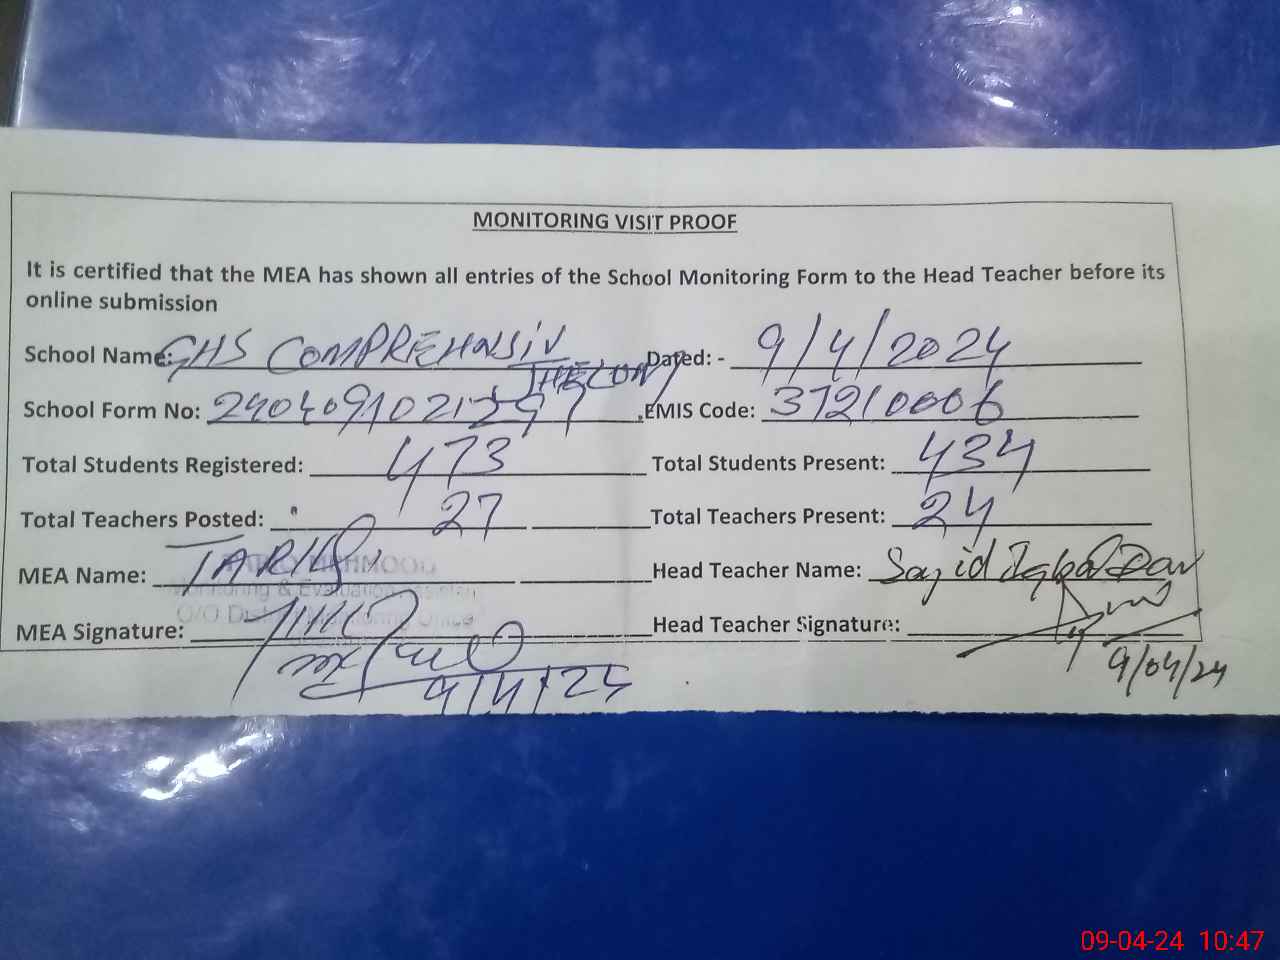 MONITORING VISIT PROOF
It is certified that the MEA has shown all entries of the School Monitoring Form to the Head Teacher before its
online submission
School Name: GHS COMPREHENSIV Dated: - 9/4/2024
School Form No: EMIS Code: 37210006
Total Students Registered: 473 Total Students Present: 434
Total Teachers Posted: 27 Total Teachers Present: 24
MEA Name: TARIQ Head Teacher Name: Sajid Iqbal
TARIQ MEHMOOD
Monitoring & Evaluation Assistant
O/O District Monitoring Office
MEA Signature: Head Teacher Signature:
9/4/24 9/04/24
09-04-24 10:47